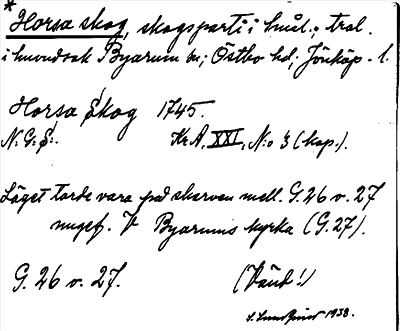 * Horsa skog, skogsparti i Smål.; trol.
i huvudsak Byarum sn; Östbo hd; Jönköp. l.
Horsa Skog 1745.
N. G. S. Kr.A. XXI, N:o 3 (kop.).
Läget torde vara på skarven mell. G. 26 o. 27
ungef. V Byarums kyrka (G. 27).
G. 26 o. 27. (Vänd!)
1938.